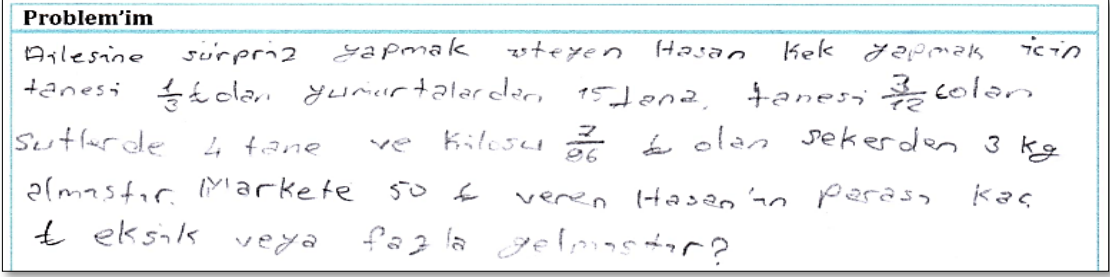 Problem'im
Ailesine sürpriz yapmak isteyen Hasan kek yapmak icin
tanesi 1/3 ₺ dan yumurtalardan 15 tane, tanesi 3/12 ₺ olan
sutlerde 4 tane ve kilosu 7/96 ₺ olan sekerden 3 kg
almıstır. Markete 50 ₺ veren Hasan'ın parası kac
₺ eksik veya fazla gelmistir?